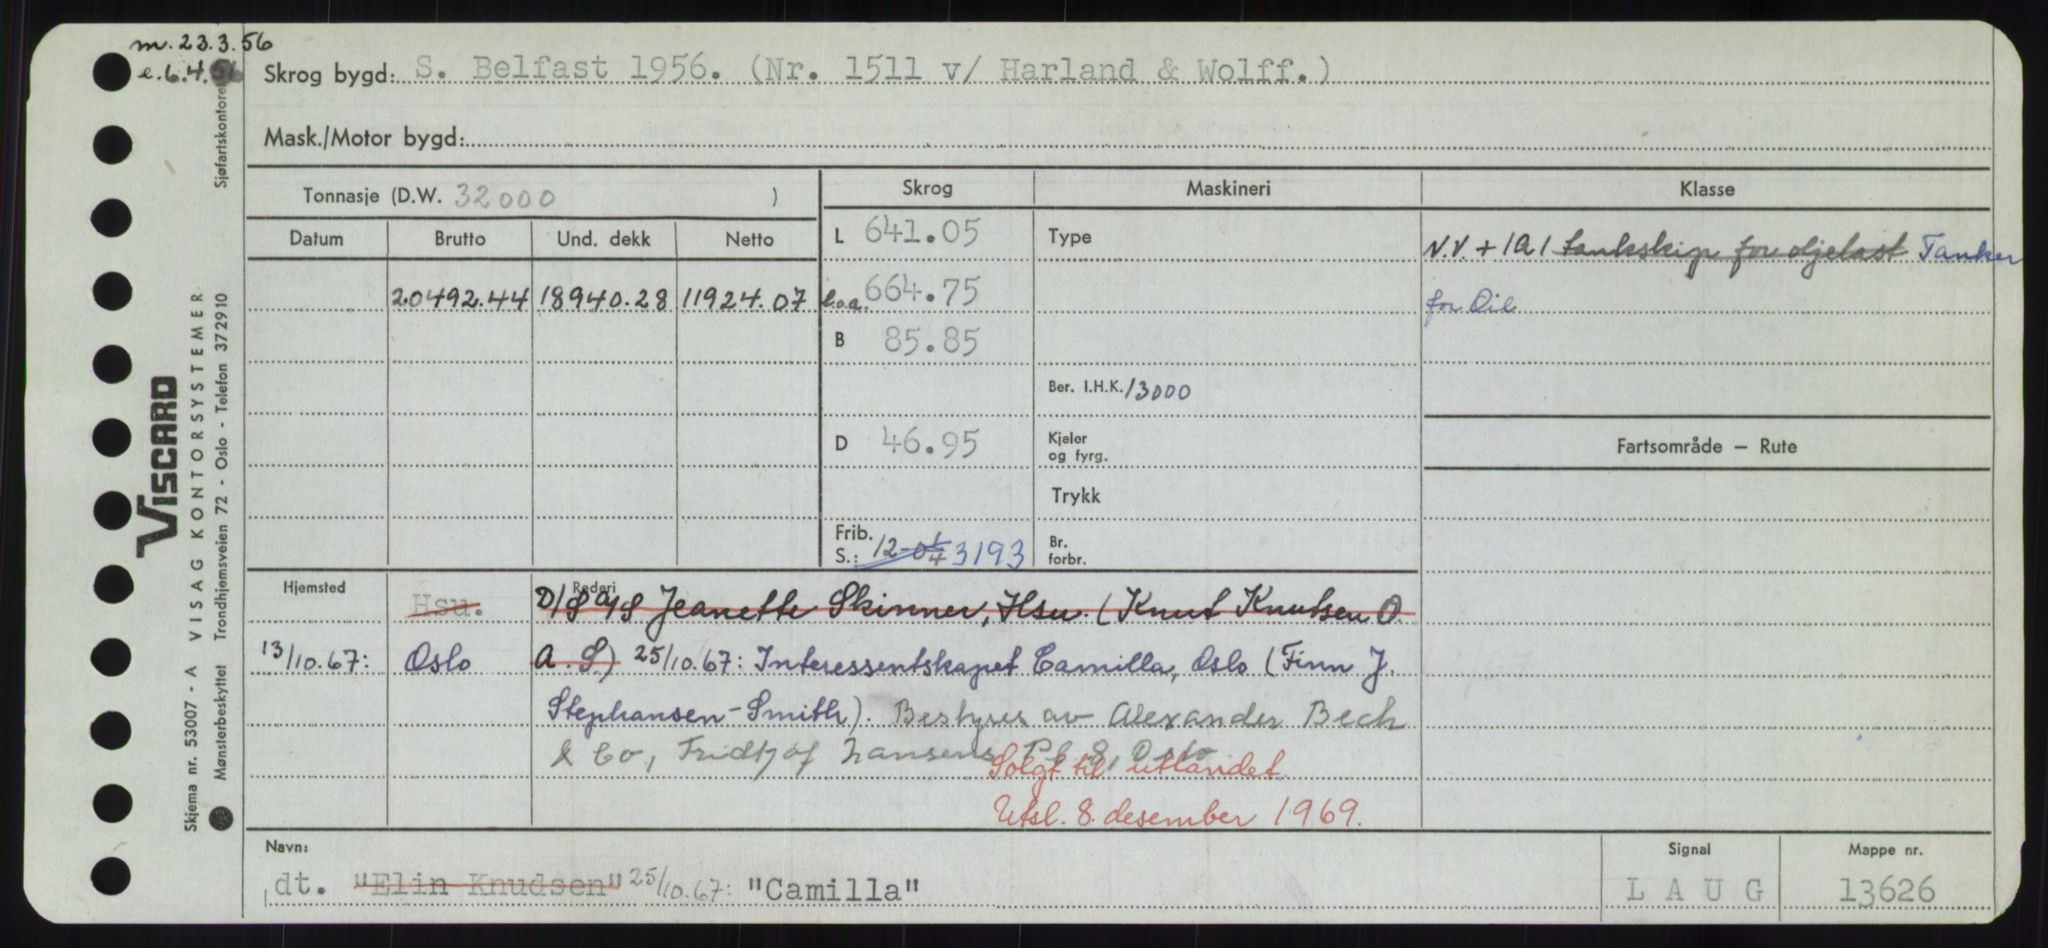 m. 23.3.56
e. 6.4.56
Skrog bygd: S. Belfast 1956. (Nr. 1511 v/ Harland & Wolff.)
Mask./Motor bygd:
Tonnasje (D.W. 32000 )
Skrog
Maskineri
Klasse
Datum
Brutto
Und. dekk
Netto
L 641.05
Type
N.V. + 1A1 tankskip for oljelast Tanker
20492.44 18940.28 11924.07
l.o.a. 664.75
for Oil
B 85.85
Ber. I.H.K. 13000
D 46.95
Kjeler
og fyrg.
Fartsområde — Rute
Trykk
Frib.
S.: 12-0¼ 3193
Br.
forbr.
Hjemsted
Rederi
Hsu.
D/S A/S Jeanette Skinner, Hsu. (Knut Knutsen O.
13/10.67: Oslo
A.S) 25/10.67: Interessentskapet Camilla, Oslo (Finn J.
Stephansen-Smith). Bestyres av Alexander Bech
& Co, Fridtjof Nansens Pl 8, Oslo
Solgt til utlandet
Utsl. 8. desember 1969.
Navn:
dt. "Elin Knudsen" 25/10.67: "Camilla"
Signal
L A U G
Mappe nr.
13626
VISCARD
Skjema nr. 53007 - A VISAG KONTORSYSTEMER
Mønsterbeskyttet Trondhjemsveien 72 - Oslo - Telefon 372910
Sjøfartskontoret